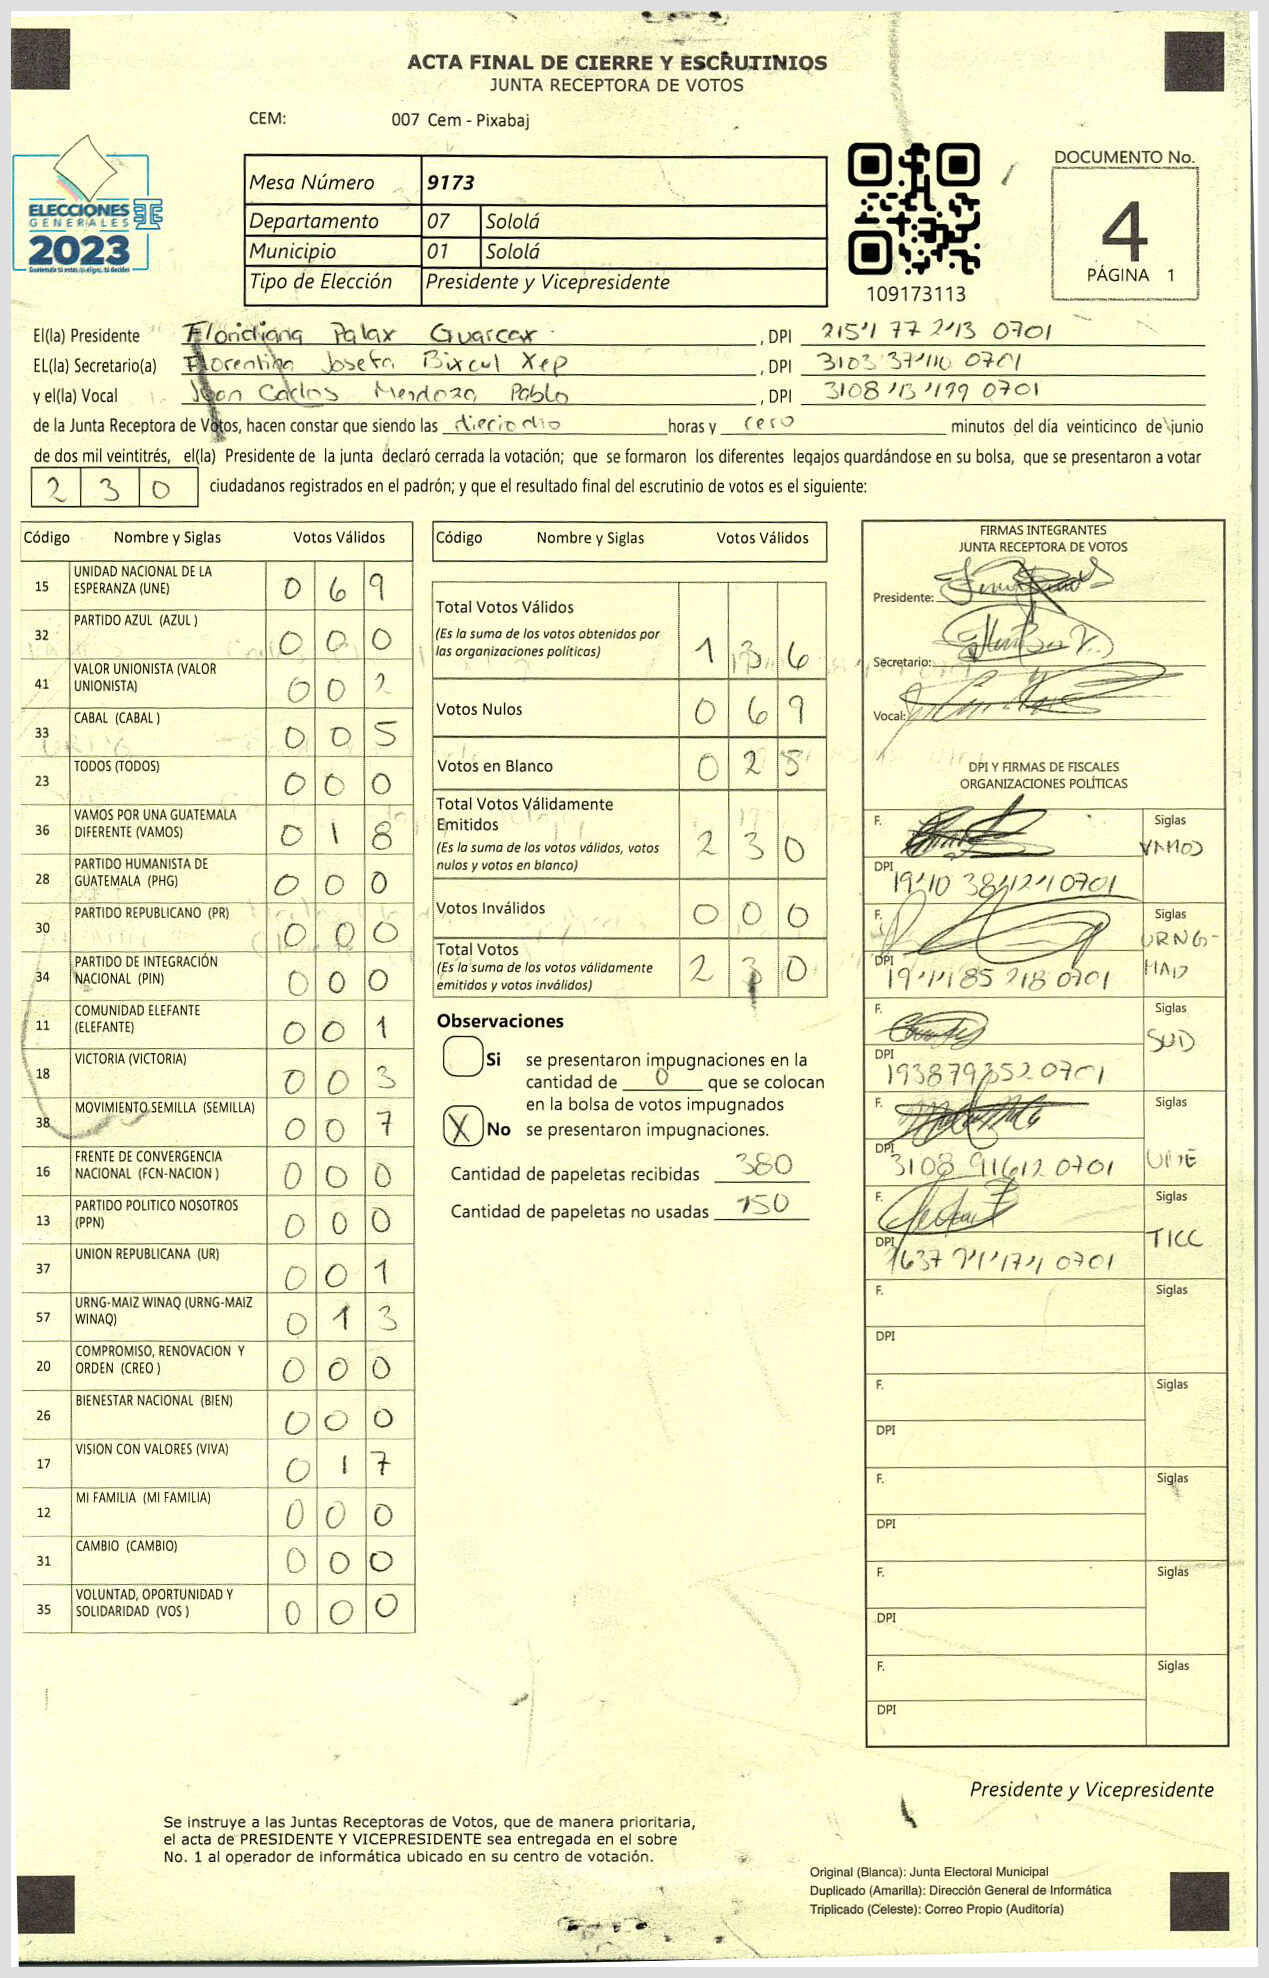 ACTA FINAL DE CIERRE Y ESCRUTINIOS
JUNTA RECEPTORA DE VOTOS
CEM: 007 Cem - Pixabaj
ELECCIONES
GENERALES
2023
Guatemala tú estás, tú eliges, tú decides
Mesa Número 9173
Departamento 07 Sololá
Municipio 01 Sololá
Tipo de Elección Presidente y Vicepresidente
109173113
DOCUMENTO No.
4
PÁGINA 1
El(la) Presidente Floridiana Palax Guarcax , DPI
EL(la) Secretario(a) Florentina Josefa Bixcul Xep , DPI
y el(la) Vocal Juan Carlos Mendoza Pablo , DPI
de la Junta Receptora de Votos, hacen constar que siendo las dieciocho horas y cero minutos del día veinticinco de junio
de dos mil veintitrés, el(la) Presidente de la junta declaró cerrada la votación; que se formaron los diferentes legajos guardándose en su bolsa, que se presentaron a votar
2 3 0 ciudadanos registrados en el padrón; y que el resultado final del escrutinio de votos es el siguiente:
Código Nombre y Siglas Votos Válidos
15 UNIDAD NACIONAL DE LA ESPERANZA (UNE) 0 6 9
32 PARTIDO AZUL (AZUL ) 0 0 0
41 VALOR UNIONISTA (VALOR UNIONISTA) 0 0 2
33 CABAL (CABAL ) 0 0 5
23 TODOS (TODOS) 0 0 0
36 VAMOS POR UNA GUATEMALA DIFERENTE (VAMOS) 0 1 8
28 PARTIDO HUMANISTA DE GUATEMALA (PHG) 0 0 0
30 PARTIDO REPUBLICANO (PR) 0 0 0
34 PARTIDO DE INTEGRACIÓN NACIONAL (PIN) 0 0 0
11 COMUNIDAD ELEFANTE (ELEFANTE) 0 0 1
18 VICTORIA (VICTORIA) 0 0 3
38 MOVIMIENTO SEMILLA (SEMILLA) 0 0 7
16 FRENTE DE CONVERGENCIA NACIONAL (FCN-NACION ) 0 0 0
13 PARTIDO POLITICO NOSOTROS (PPN) 0 0 0
37 UNION REPUBLICANA (UR) 0 0 1
57 URNG-MAIZ WINAQ (URNG-MAIZ WINAQ) 0 1 3
20 COMPROMISO, RENOVACION Y ORDEN (CREO ) 0 0 0
26 BIENESTAR NACIONAL (BIEN) 0 0 0
17 VISION CON VALORES (VIVA) 0 1 7
12 MI FAMILIA (MI FAMILIA) 0 0 0
31 CAMBIO (CAMBIO) 0 0 0
35 VOLUNTAD, OPORTUNIDAD Y SOLIDARIDAD (VOS ) 0 0 0
Código Nombre y Siglas Votos Válidos
Total Votos Válidos
(Es la suma de los votos obtenidos por
las organizaciones políticas) 1 3 6
Votos Nulos 0 6 9
Votos en Blanco 0 2 5
Total Votos Válidamente
Emitidos
(Es la suma de los votos válidos, votos
nulos y votos en blanco) 2 3 0
Votos Inválidos 0 0 0
Total Votos
(Es la suma de los votos válidamente
emitidos y votos inválidos) 2 3 0
Observaciones
Si se presentaron impugnaciones en la
cantidad de 0 que se colocan
en la bolsa de votos impugnados
X No se presentaron impugnaciones.
Cantidad de papeletas recibidas 380
Cantidad de papeletas no usadas 150
FIRMAS INTEGRANTES
JUNTA RECEPTORA DE VOTOS
Presidente:
Secretario:
Vocal:
DPI Y FIRMAS DE FISCALES
ORGANIZACIONES POLÍTICAS
F. Siglas
VAMOS
DPI
F. Siglas
URNG-
DPI
F. Siglas
DPI 1938793520701
F. Siglas
UNE
DPI 3108 91612 0701
F. Siglas
TICC
DPI
F. Siglas
DPI
F. Siglas
DPI
F. Siglas
DPI
F. Siglas
DPI
F. Siglas
DPI
Presidente y Vicepresidente
Se instruye a las Juntas Receptoras de Votos, que de manera prioritaria,
el acta de PRESIDENTE Y VICEPRESIDENTE sea entregada en el sobre
No. 1 al operador de informática ubicado en su centro de votación.
Original (Blanca): Junta Electoral Municipal
Duplicado (Amarilla): Dirección General de Informática
Triplicado (Celeste): Correo Propio (Auditoría)